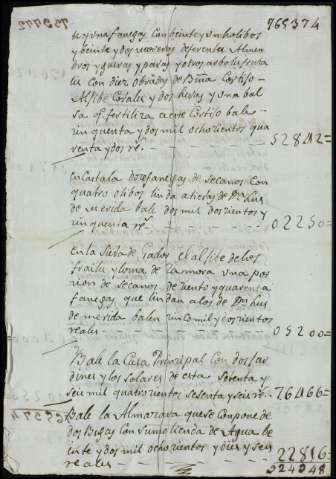 765374
te y una fanegas con beinte y un holibos
y beinte y dos moreras diferentes Almen
dros y gueras y parras y otros arboles fruta
les con diez obradas de Biña Cortijo
Algibe Corales y dos heras y una bal
sa q.e fertiliza a este Cortijo bale
sinquenta y dos mil ochocientos qua
renta y dos r.s
52842=
en Cartala dose fanegas de secanos con
quatro olibos linda a tieras de D.n Luis
de merida bale dos mil docientos y
sinquenta r.s
02250=
en la Siera de Gador el algibe de los
frailes y loma de la mora una por
sion de secanos de siento y quarenta
fanegas que lindan a los de D.n Luis
de merida balen sinco mil y docientos
reales
05200=
Bale la Casa Principal con dos Jar
dines y los Solares de esta setenta y
seis mil quatrocientos sesenta y seis r.s
76466=
Bale la Almazara que se compone de
dos Bigas con sumolienda de Agua be
inte y dos mil ochocientos y diez y seis
reales
22816=
924948